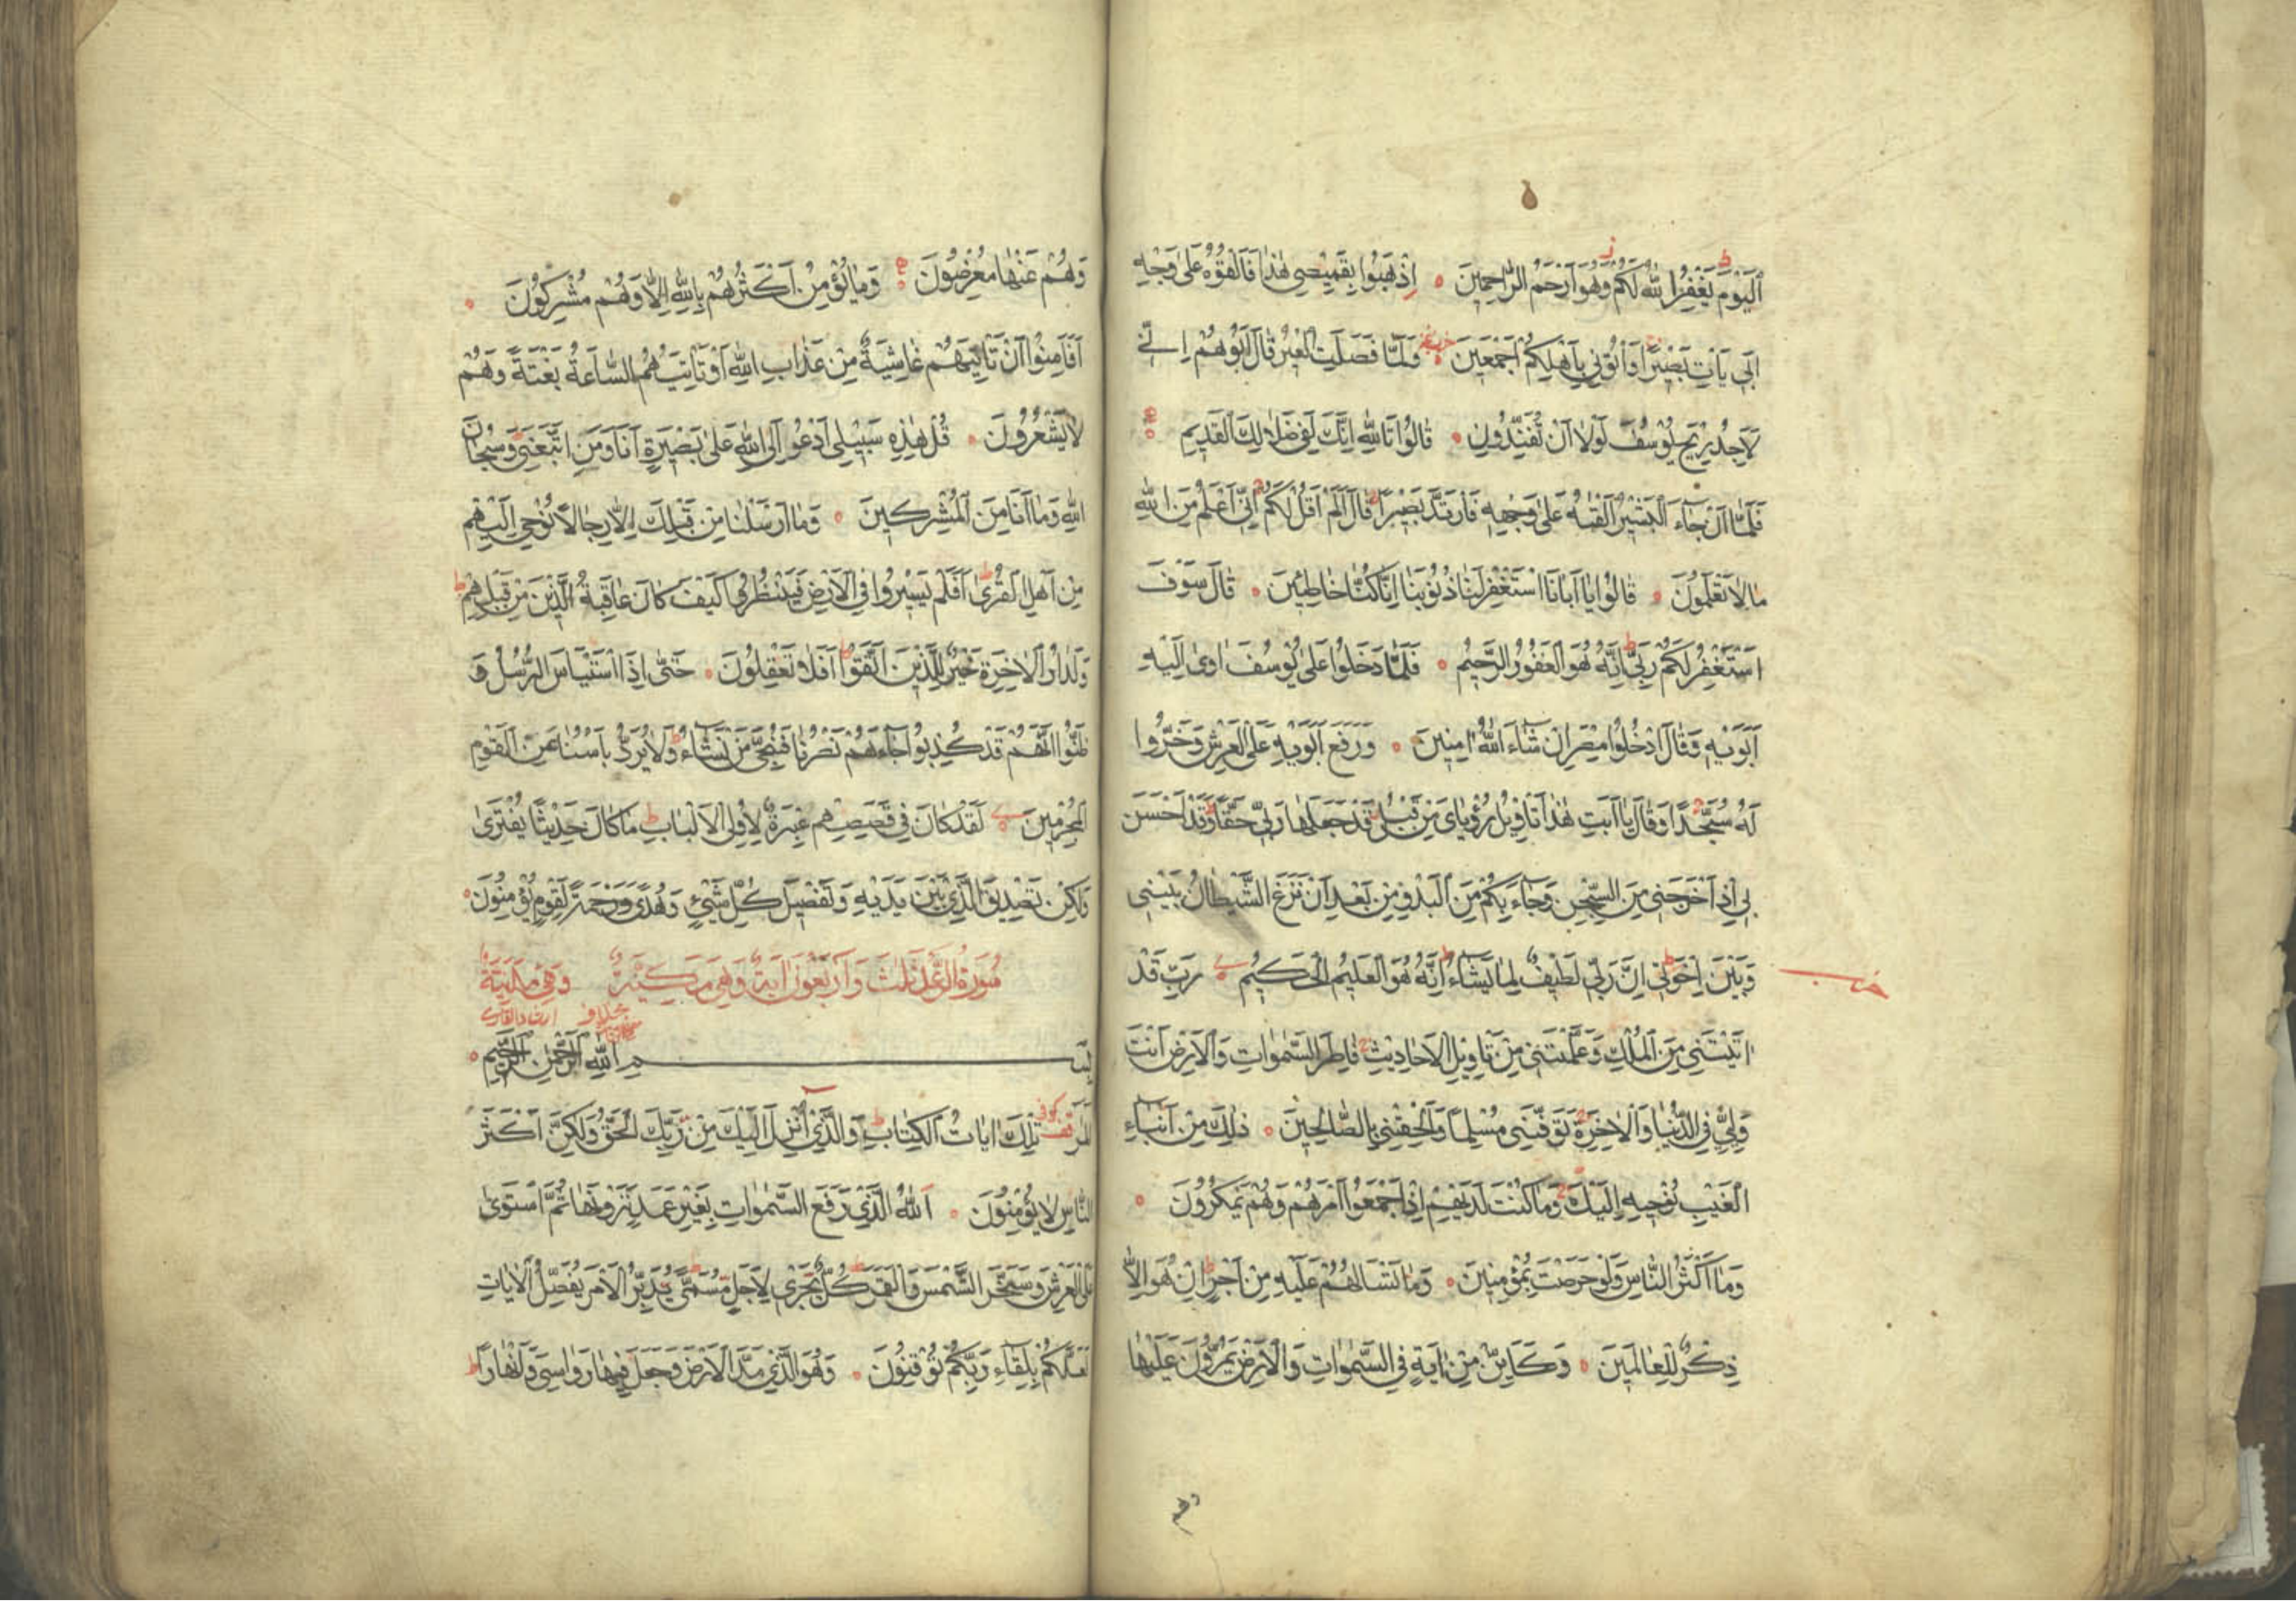 اَلْيَوْمَ يَغْفِرُ اللّٰهُ لَكُمْ وَهُوَ اَرْحَمُ الرَّاحِمِينَ اِذْهَبُوا بِقَمِيصِى هٰذَا فَاَلْقُوهُ عَلٰى وَجْهِ
اَبِى يَاْتِ بَصِيرًا وَاْتُونِى بِاَهْلِكُمْ اَجْمَعِينَ وَلَمَّا فَصَلَتِ الْعِيرُ قَالَ اَبُوهُمْ اِنِّى
لَاَجِدُ رِيحَ يُوسُفَ لَوْلَا اَنْ تُفَنِّدُونِ قَالُوا تَاللّٰهِ اِنَّكَ لَفِى ضَلَالِكَ الْقَدِيمِ
فَلَمَّا اَنْ جَاءَ الْبَشِيرُ اَلْقٰيهُ عَلٰى وَجْهِهِ فَارْتَدَّ بَصِيرًا قَالَ اَلَمْ اَقُلْ لَكُمْ اِنِّى اَعْلَمُ مِنَ اللّٰهِ
مَا لَا تَعْلَمُونَ قَالُوا يَا اَبَانَا اسْتَغْفِرْ لَنَا ذُنُوبَنَا اِنَّا كُنَّا خَاطِئِينَ قَالَ سَوْفَ
اَسْتَغْفِرُ لَكُمْ رَبِّى اِنَّهُ هُوَ الْغَفُورُ الرَّحِيمُ فَلَمَّا دَخَلُوا عَلٰى يُوسُفَ اٰوٰى اِلَيْهِ
اَبَوَيْهِ وَقَالَ ادْخُلُوا مِصْرَ اِنْ شَاءَ اللّٰهُ اٰمِنِينَ وَرَفَعَ اَبَوَيْهِ عَلَى الْعَرْشِ وَخَرُّوا
لَهُ سُجَّدًا وَقَالَ يَا اَبَتِ هٰذَا تَاْوِيلُ رُؤْيَاىَ مِنْ قَبْلُ قَدْ جَعَلَهَا رَبِّى حَقًّا وَقَدْ اَحْسَنَ
بِى اِذْ اَخْرَجَنِى مِنَ السِّجْنِ وَجَاءَ بِكُمْ مِنَ الْبَدْوِ مِنْ بَعْدِ اَنْ نَزَغَ الشَّيْطَانُ بَيْنِى
وَبَيْنَ اِخْوَتِى اِنَّ رَبِّى لَطِيفٌ لِمَا يَشَاءُ اِنَّهُ هُوَ الْعَلِيمُ الْحَكِيمُ رَبِّ قَدْ
اٰتَيْتَنِى مِنَ الْمُلْكِ وَعَلَّمْتَنِى مِنْ تَاْوِيلِ الْاَحَادِيثِ فَاطِرَ السَّمٰوَاتِ وَالْاَرْضِ اَنْتَ
وَلِيِّى فِى الدُّنْيَا وَالْاٰخِرَةِ تَوَفَّنِى مُسْلِمًا وَاَلْحِقْنِى بِالصَّالِحِينَ ذٰلِكَ مِنْ اَنْبَاءِ
الْغَيْبِ نُوحِيهِ اِلَيْكَ وَمَا كُنْتَ لَدَيْهِمْ اِذْ اَجْمَعُوا اَمْرَهُمْ وَهُمْ يَمْكُرُونَ
وَمَا اَكْثَرُ النَّاسِ وَلَوْ حَرَصْتَ بِمُؤْمِنِينَ وَمَا تَسْـَٔلُهُمْ عَلَيْهِ مِنْ اَجْرٍ اِنْ هُوَ اِلَّا
ذِكْرٌ لِلْعَالَمِينَ وَكَاَيِّنْ مِنْ اٰيَةٍ فِى السَّمٰوَاتِ وَالْاَرْضِ يَمُرُّونَ عَلَيْهَا
وَهُمْ عَنْهَا مُعْرِضُونَ وَمَا يُؤْمِنُ اَكْثَرُهُمْ بِاللّٰهِ اِلَّا وَهُمْ مُشْرِكُونَ
اَفَاَمِنُوا اَنْ تَاْتِيَهُمْ غَاشِيَةٌ مِنْ عَذَابِ اللّٰهِ اَوْ تَاْتِيَهُمُ السَّاعَةُ بَغْتَةً وَهُمْ
لَا يَشْعُرُونَ قُلْ هٰذِهِ سَبِيلِى اَدْعُو اِلَى اللّٰهِ عَلٰى بَصِيرَةٍ اَنَا وَمَنِ اتَّبَعَنِى وَسُبْحَانَ
اللّٰهِ وَمَا اَنَا مِنَ الْمُشْرِكِينَ وَمَا اَرْسَلْنَا مِنْ قَبْلِكَ اِلَّا رِجَالًا نُوحِى اِلَيْهِمْ
مِنْ اَهْلِ الْقُرٰى اَفَلَمْ يَسِيرُوا فِى الْاَرْضِ فَيَنْظُرُوا كَيْفَ كَانَ عَاقِبَةُ الَّذِينَ مِنْ قَبْلِهِمْ
وَلَدَارُ الْاٰخِرَةِ خَيْرٌ لِلَّذِينَ اتَّقَوْا اَفَلَا تَعْقِلُونَ حَتّٰى اِذَا اسْتَيْاَسَ الرُّسُلُ وَ
ظَنُّوا اَنَّهُمْ قَدْ كُذِبُوا جَاءَهُمْ نَصْرُنَا فَنُجِّىَ مَنْ نَشَاءُ وَلَا يُرَدُّ بَاْسُنَا عَنِ الْقَوْمِ
الْمُجْرِمِينَ لَقَدْ كَانَ فِى قَصَصِهِمْ عِبْرَةٌ لِاُولِى الْاَلْبَابِ مَا كَانَ حَدِيثًا يُفْتَرٰى
وَلٰكِنْ تَصْدِيقَ الَّذِى بَيْنَ يَدَيْهِ وَتَفْصِيلَ كُلِّ شَىْءٍ وَهُدًى وَرَحْمَةً لِقَوْمٍ يُؤْمِنُونَ
سُورَةُ الرَّعْدِ ثَلٰثٌ وَاَرْبَعُونَ اٰيَةً وَهِىَ مَكِّيَّةٌ وَهِىَ مَدَنِيَّةٌ
بِسْمِ اللّٰهِ الرَّحْمٰنِ الرَّحِيمِ
الٓمٓرٰ تِلْكَ اٰيَاتُ الْكِتَابِ وَالَّذِى اُنْزِلَ اِلَيْكَ مِنْ رَبِّكَ الْحَقُّ وَلٰكِنَّ اَكْثَرَ
النَّاسِ لَا يُؤْمِنُونَ اَللّٰهُ الَّذِى رَفَعَ السَّمٰوَاتِ بِغَيْرِ عَمَدٍ تَرَوْنَهَا ثُمَّ اسْتَوٰى
عَلَى الْعَرْشِ وَسَخَّرَ الشَّمْسَ وَالْقَمَرَ كُلٌّ يَجْرِى لِاَجَلٍ مُسَمًّى يُدَبِّرُ الْاَمْرَ يُفَصِّلُ الْاٰيَاتِ
لَعَلَّكُمْ بِلِقَاءِ رَبِّكُمْ تُوقِنُونَ وَهُوَ الَّذِى مَدَّ الْاَرْضَ وَجَعَلَ فِيهَا رَوَاسِىَ وَاَنْهَارًا